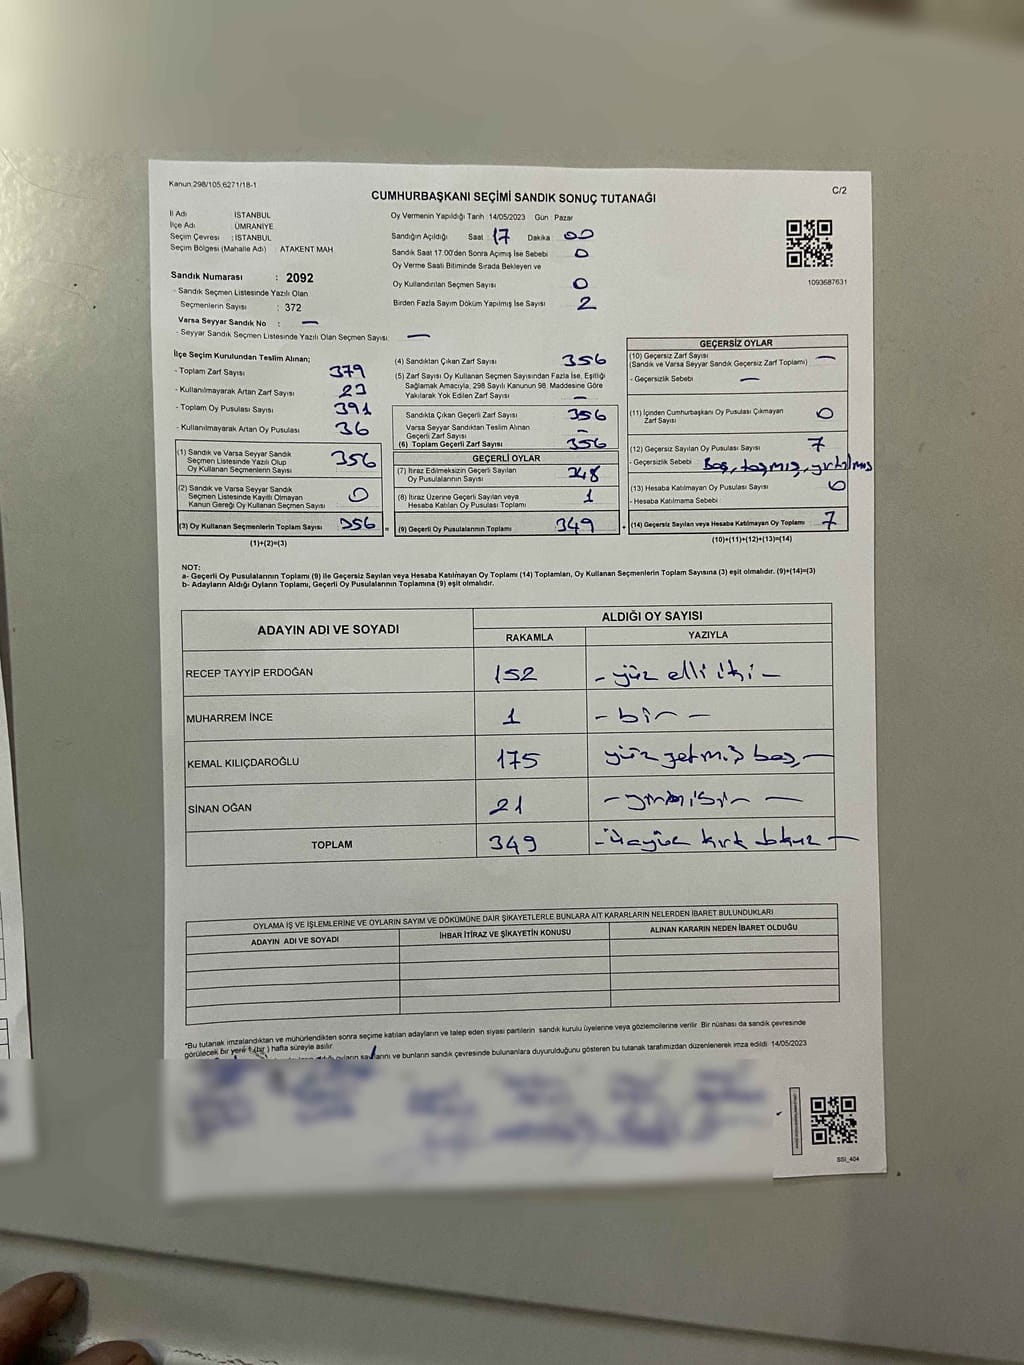 Kanun.298/105.6271/18-1
C/2
CUMHURBAŞKANI SEÇİMİ SANDIK SONUÇ TUTANAĞI
İl Adı : İSTANBUL
İlçe Adı : ÜMRANİYE
Seçim Çevresi : İSTANBUL
Seçim Bölgesi (Mahalle Adı) : ATAKENT MAH
Oy Vermenin Yapıldığı Tarih :14/05/2023 Gün : Pazar
Sandığın Açıldığı Saat 17 Dakika 00
Sandık Saat 17:00'den Sonra Açımış İse Sebebi 0
Oy Verme Saati Bitiminde Sırada Bekleyen ve
Oy Kullandırılan Seçmen Sayısı 0
Birden Fazla Sayım Döküm Yapılmış İse Sayısı 2
1093687631
Sandık Numarası : 2092
- Sandık Seçmen Listesinde Yazılı Olan
Seçmenlerin Sayısı : 372
Varsa Seyyar Sandık No : —
- Seyyar Sandık Seçmen Listesinde Yazılı Olan Seçmen Sayısı: —
İlçe Seçim Kurulundan Teslim Alınan;
- Toplam Zarf Sayısı 379
- Kullanılmayarak Artan Zarf Sayısı 23
- Toplam Oy Pusulası Sayısı 391
- Kullanılmayarak Artan Oy Pusulası 36
(1) Sandık ve Varsa Seyyar Sandık
Seçmen Listesinde Yazılı Olup
Oy Kullanan Seçmenlerin Sayısı 356
(2) Sandık ve Varsa Seyyar Sandık
Seçmen Listesinde Kayıtlı Olmayan
Kanun Gereği Oy Kullanan Seçmen Sayısı 0
(3) Oy Kullanan Seçmenlerin Toplam Sayısı 356 =
(1)+(2)=(3)
(4) Sandıktan Çıkan Zarf Sayısı 356
(5) Zarf Sayısı Oy Kullanan Seçmen Sayısından Fazla İse, Eşitliği
Sağlamak Amacıyla, 298 Sayılı Kanunun 98. Maddesine Göre
Yakılarak Yok Edilen Zarf Sayısı —
Sandıkta Çıkan Geçerli Zarf Sayısı 356
Varsa Seyyar Sandıktan Teslim Alınan
Geçerli Zarf Sayısı —
(6) Toplam Geçerli Zarf Sayısı 356
GEÇERLİ OYLAR
(7) İtiraz Edilmeksizin Geçerli Sayılan
Oy Pusulalarının Sayısı 348
(8) İtiraz Üzerine Geçerli Sayılan veya
Hesaba Katılan Oy Pusulası Toplamı 1
(9) Geçerli Oy Pusulalarının Toplamı 349 +
GEÇERSİZ OYLAR
(10) Geçersiz Zarf Sayısı —
(Sandık ve Varsa Seyyar Sandık Geçersiz Zarf Toplamı)
- Geçersizlik Sebebi —
(11) İçinden Cumhurbaşkanı Oy Pusulası Çıkmayan
Zarf Sayısı 0
(12) Geçersiz Sayılan Oy Pusulası Sayısı 7
- Geçersizlik Sebebi Boş, taşmış, yırtılmış
(13) Hesaba Katılmayan Oy Pusulası Sayısı 0
- Hesaba Katılmama Sebebi
(14) Geçersiz Sayılan veya Hesaba Katılmayan Oy Toplamı 7
(10)+(11)+(12)+(13)=(14)
NOT:
a- Geçerli Oy Pusulalarının Toplamı (9) ile Geçersiz Sayılan veya Hesaba Katılmayan Oy Toplamı (14) Toplamları, Oy Kullanan Seçmenlerin Toplam Sayısına (3) eşit olmalıdır. (9)+(14)=(3)
b- Adayların Aldığı Oyların Toplamı, Geçerli Oy Pusulalarının Toplamına (9) eşit olmalıdır.
ADAYIN ADI VE SOYADI
ALDIĞI OY SAYISI
RAKAMLA YAZIYLA
RECEP TAYYİP ERDOĞAN 152 - yüz elli iki -
MUHARREM İNCE 1 - bir -
KEMAL KILIÇDAROĞLU 175 yüz yetmiş beş -
SİNAN OĞAN 21 - yirmibir -
TOPLAM 349 - Üçyüz kırk dokuz -
OYLAMA İŞ VE İŞLEMLERİNE VE OYLARIN SAYIM VE DÖKÜMÜNE DAİR ŞİKAYETLERLE BUNLARA AİT KARARLARIN NELERDEN İBARET BULUNDUKLARI
ADAYIN ADI VE SOYADI İHBAR İTİRAZ VE ŞİKAYETİN KONUSU ALINAN KARARIN NEDEN İBARET OLDUĞU
*Bu tutanak imzalandıktan ve mühürlendikten sonra seçime katılan adayların ve talep eden siyasi partilerin sandık kurulu üyelerine veya gözlemcilerine verilir. Bir nüshası da sandık çevresinde
görülecek bir yere 1 (bir) hafta süreyle asılır.
oyların sayılarını ve bunların sandık çevresinde bulunanlara duyurulduğunu gösteren bu tutanak tarafımızdan düzenlenerek imza edildi. 14/05/2023
SSI_404